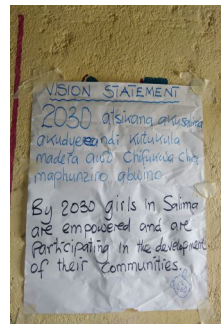 VISION STATEMENT
2030 atsikana akusalima
akudye ndi kutukula
madera awo Chifukwa cha
maphunziro abwino
By 2030 girls in Salima
are empowered and are
Participating in the development
of their communities.